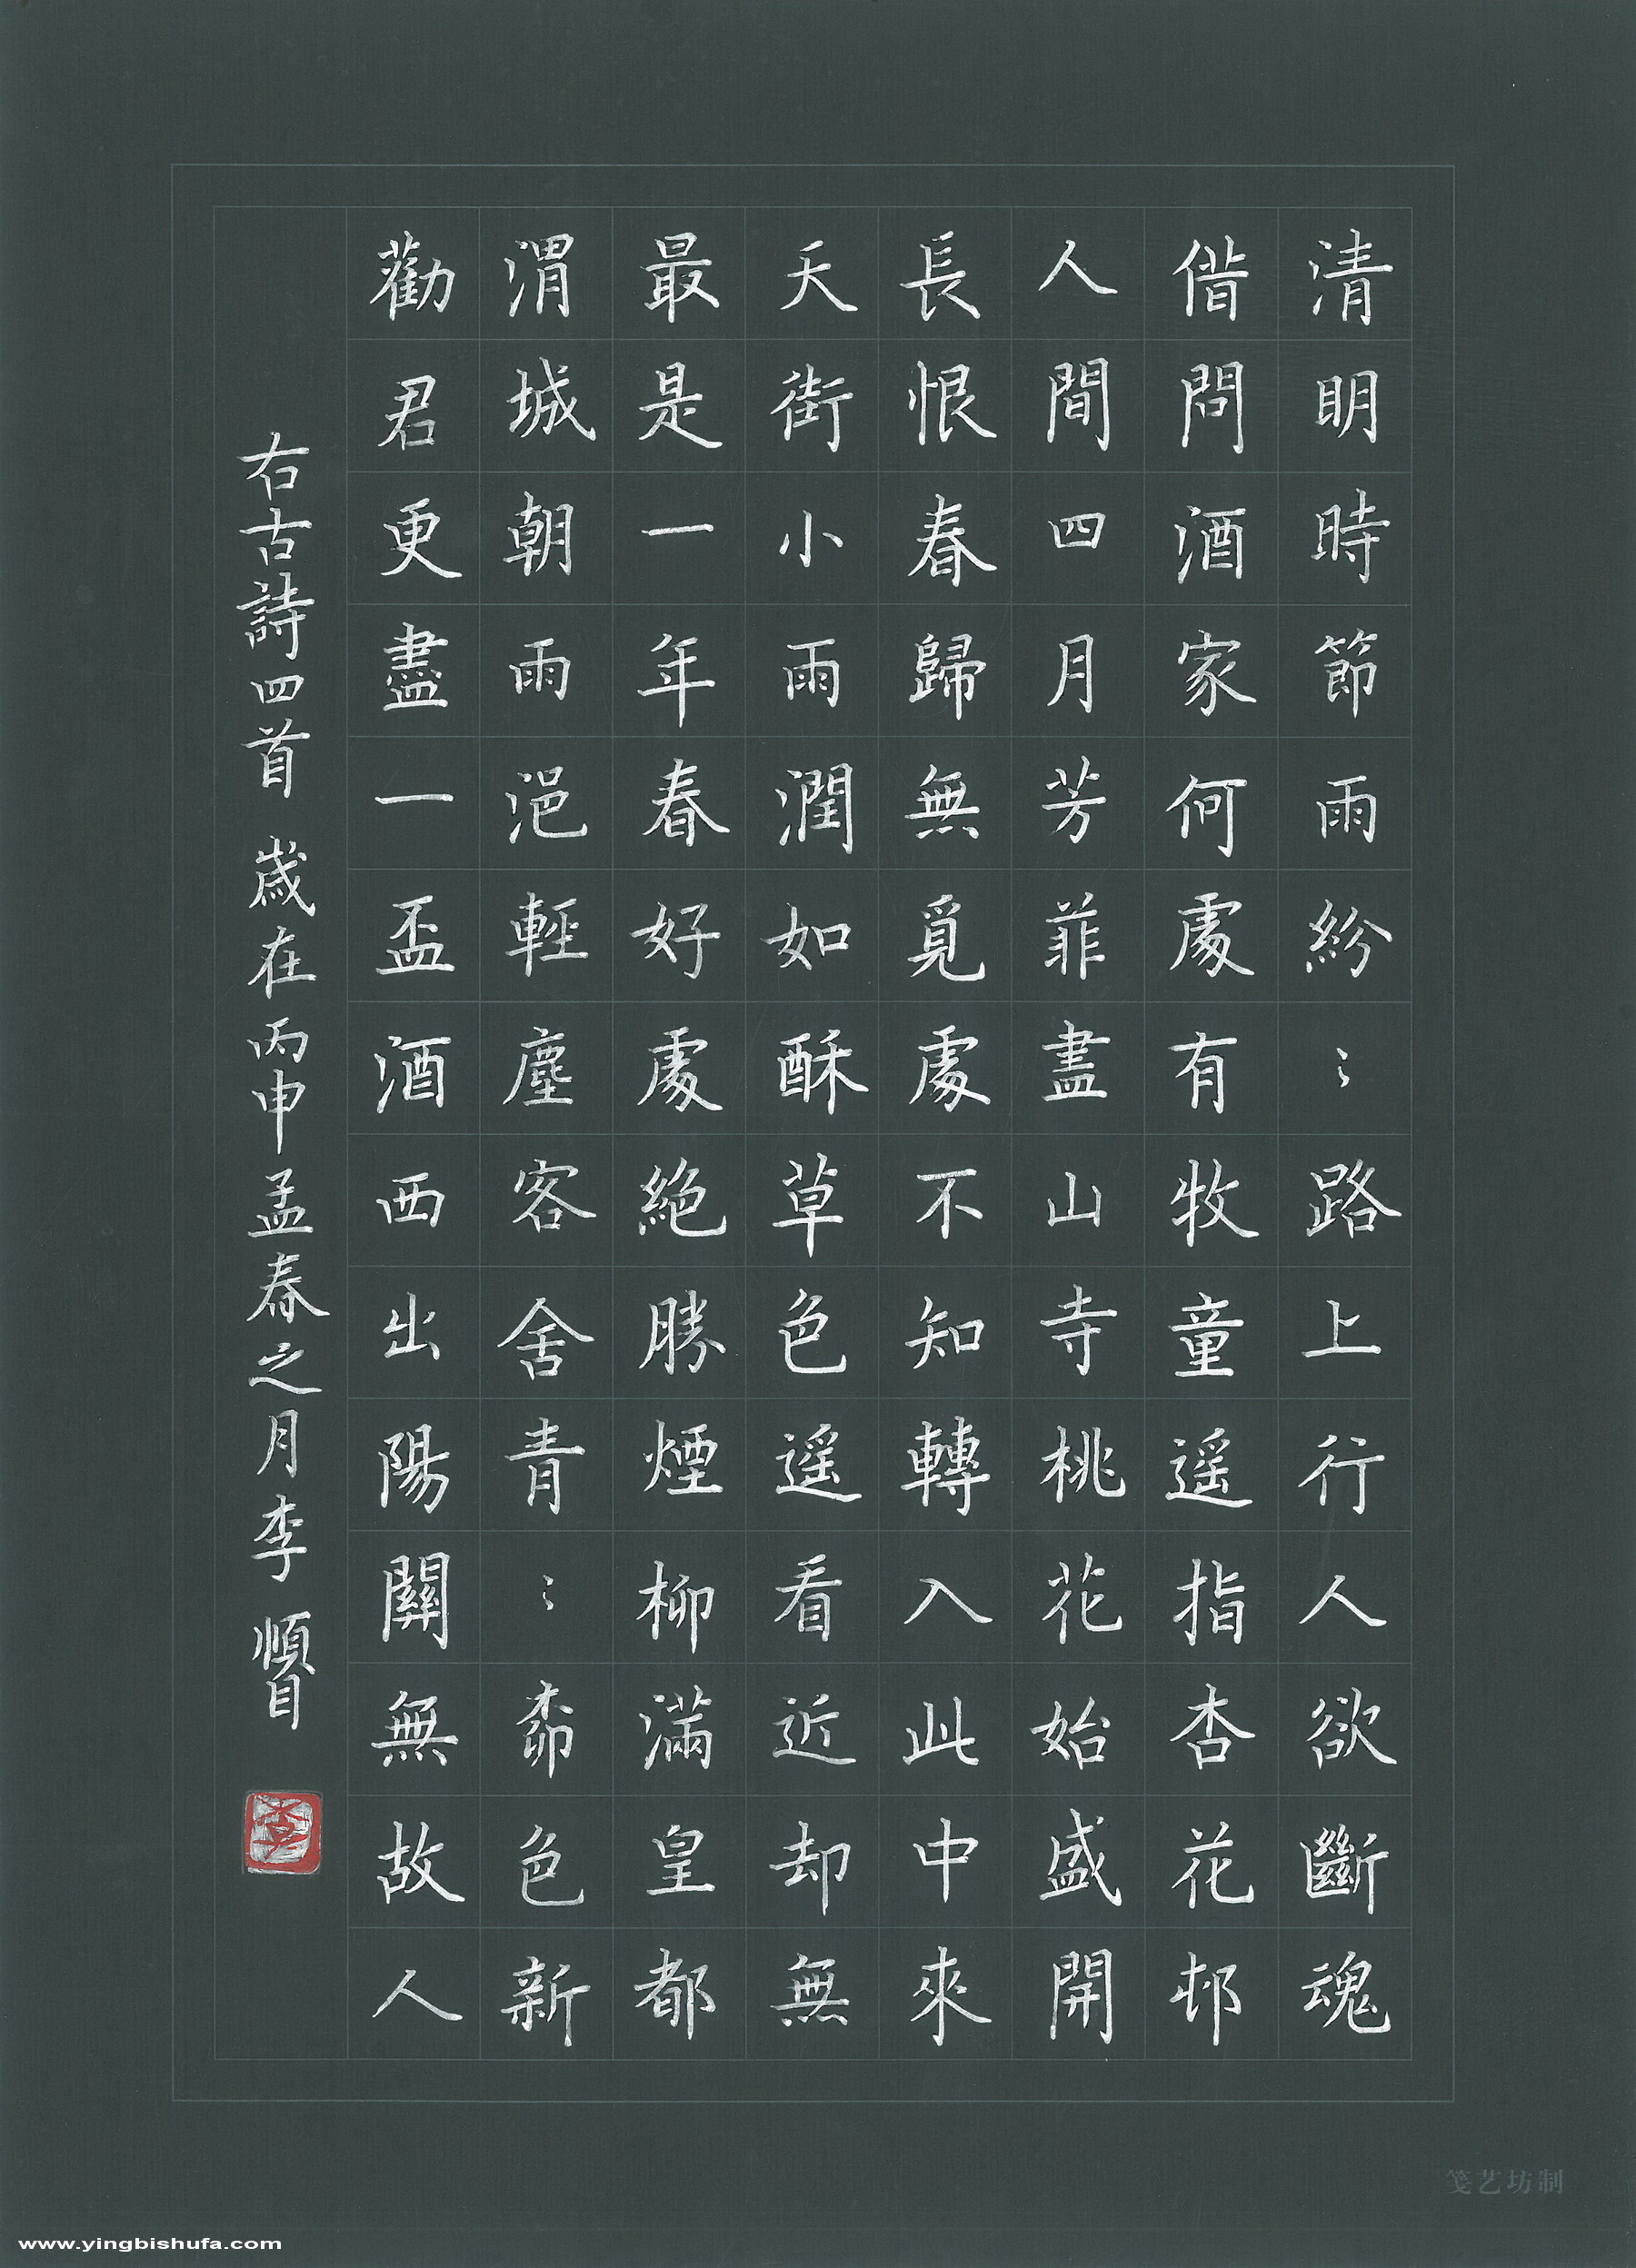 清明時節雨紛〻路上行人欲斷魂
借問酒家何處有牧童遥指杏花邨
人間四月芳菲盡山寺桃花始盛開
長恨春歸無覓處不知轉入此中來
天街小雨潤如酥草色遥看近却無
最是一年春好處絶勝煙柳滿皇都
渭城朝雨浥輕塵客舍青〻桺色新
勸君更盡一盃酒西出陽關無故人
右古詩四首 歲在丙申孟春之月李
笺艺坊制
www.yingbishufa.com